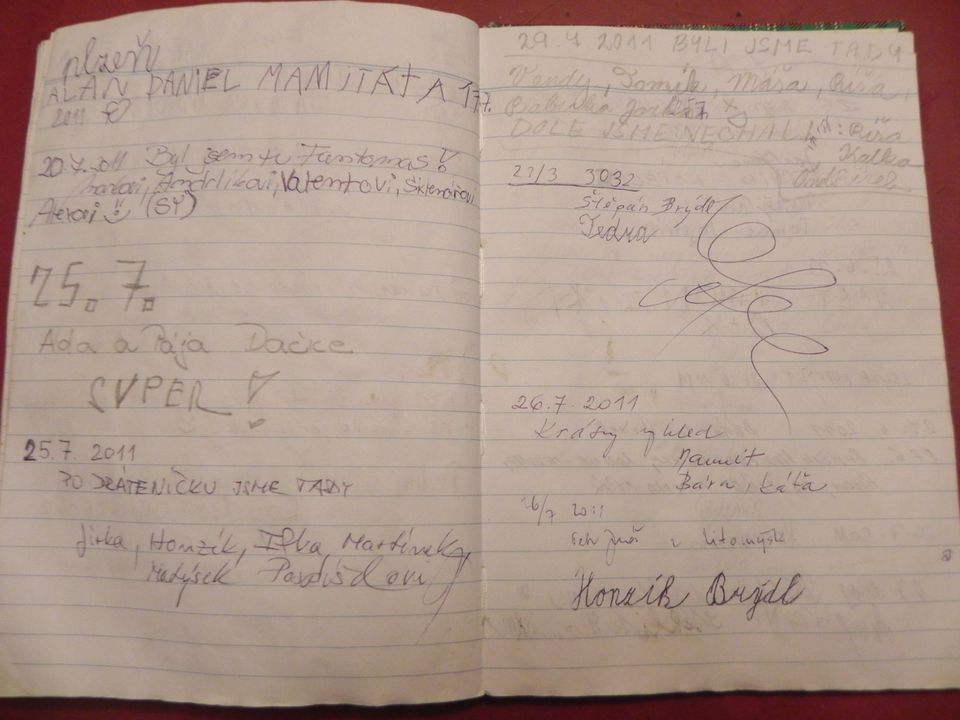 plzeň
ALAN DANIEL MAMITÁTA 17.7.
2011
20.7.2011 Byl jsem tu Fantomas!
Andrlíkovi, Valentovi, Sklenářovi
(SY)
25. 7.
Ada a Pája Dačice
SUPER!
25.7. 2011
PO DRÁTENÍČKU JSME TADY
Jirka, Honzík, Ilka, Martínek
Matýsek Pospíšilovi
29.7 2011 BYLI JSME TADY
Vendy, Tomík, Máša, Ríša,
DOLE JSME NECHALI: Ríša
Kalka
21/3 3032
Štěpán Brýdl
26.7.2011
Krásný výhled
Bára, Káťa
26/7 2011
z Litomyšle
Honzík Brýdl